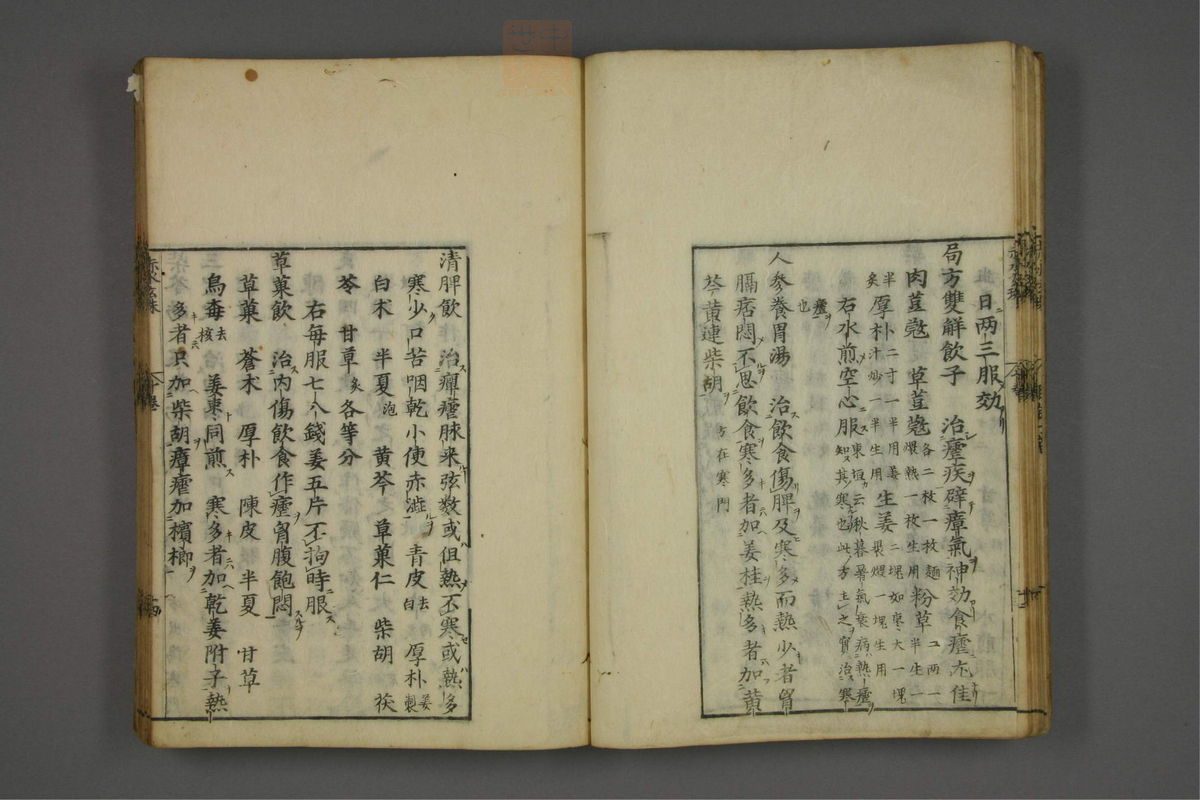 日两三服効
局方雙解飲子　治瘧疾辟瘴氣神効食瘧尤佳
肉荳蔻　草荳蔻各二枚一枚麵煨熟一枚生用粉草二两一半生一
半炙厚朴二寸一半用姜汁炒一半生用生姜二塊如棗大一塊煨一塊生用
右水煎空心服東垣云秋暮暑氣衰病熱瘧知其寒也此方主之實治寒
瘧也
人參養胃湯　治飲食傷脾及寒多而熱少者胃
膈痞悶不思飲食寒多者加姜桂熱多者加黃
芩黄連柴胡方在寒門
清脾飲　治癉瘧脉来弦数或但熱不寒或熱多
寒少口苦咽乾小使赤澁　青皮去白　厚朴姜製
白术　半夏泡　黄芩　草菓仁　柴胡　茯
苓　甘草炙各等分
右每服七八錢姜五片不拘時服
草菓飲　治内傷飲食作瘧胷腹飽悶
草菓　蒼术　厚朴　陳皮　半夏　甘草
烏毒去核　姜棗同煎　寒多者加乾姜附子熱
多者只加柴胡瘴瘧加檳榔